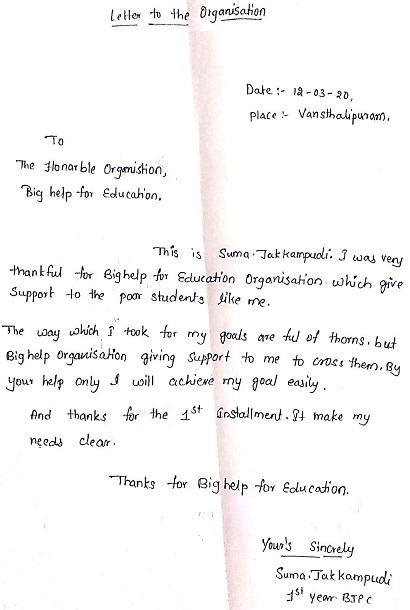 Letter to the Organisation
Date :- 12-03-20,
place :- Vansthalipuram.
To
The Honarble Orgnistion,
Big help for Education,
This is Suma.Jakkampudi. I was very
thankful for Bighelp for Education Organisation. which give
Support to the poor students like me.
The way which I took for my goals are ful of thorns. but
Bighelp Organisation giving Support to me to cross them. By
your help only I will achieve my goal easily.
And thanks for the 1st installment. It make my
needs clear.
Thanks for Big help for Education.
Your's Sincrely
Suma.Jakkampudi
1st year BJPC